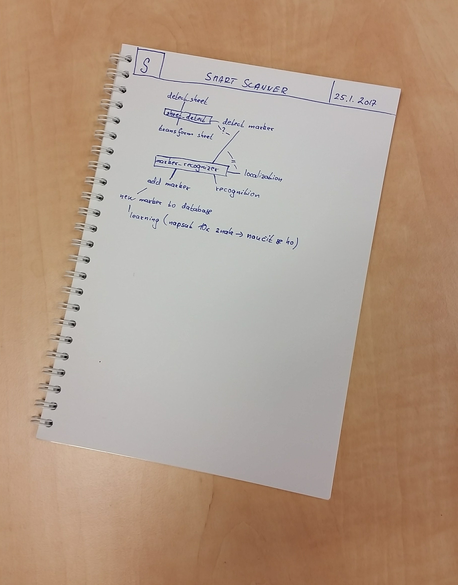 S
SMART SCANNER
25.1. 2017
detect sheet
sheet-detect
detect marker
transform sheet
?
marker-recognizer
localization
add marker
recognition
new marker to database
learning (napsat 10x znak → naučit se ho)